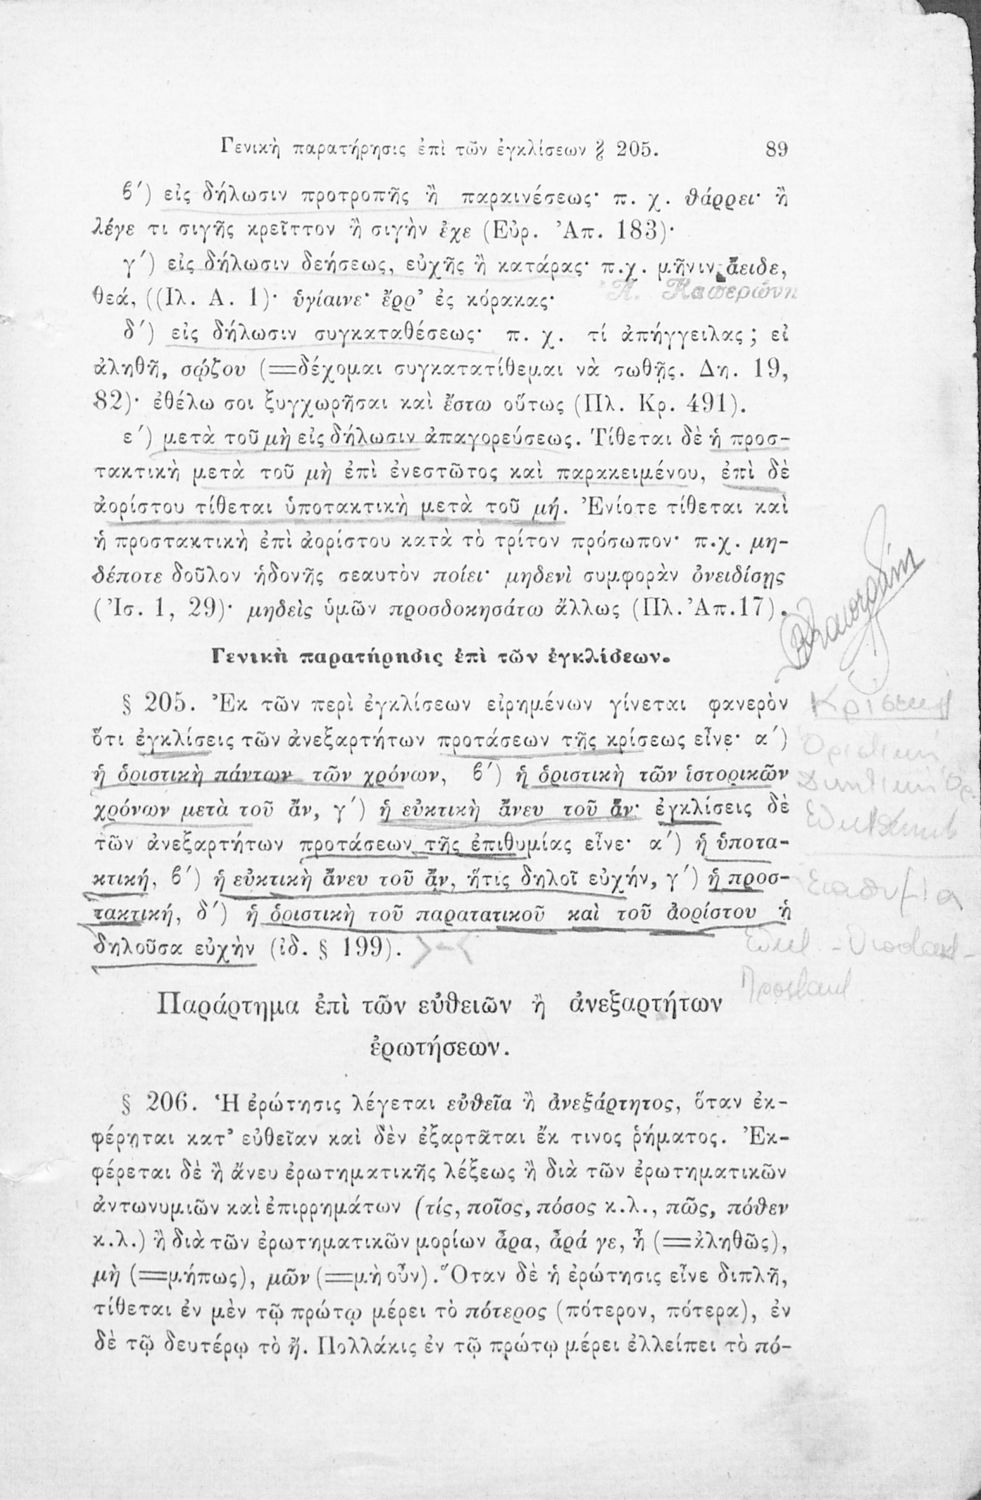 Γενικὴ παρατήρησις ἐπὶ τῶν ἐγκλίσεων § 205. 89
β΄) εἰς δήλωσιν προτροπῆς ἢ παραινέσεως· π. χ. θάρρει· ἢ
λέγε τι σιγῆς κρεῖττον ἢ σιγὴν ἔχε (Εὐρ. Ἀπ. 183)·
γ΄) εἰς δήλωσιν δεήσεως, εὐχῆς ἢ κατάρας· π.χ. μῆνιν ἄειδε,
θεά, ((Ιλ. Α. 1)· ὑγίαινε· ἔρρ’ ἐς κόρακας·
δ΄) εἰς δήλωσιν συγκαταθέσεως· π. χ. τί ἀπήγγειλας ; εἰ
ἀληθῆ, σῴζου (=δέχομαι συγκατατίθεμαι νὰ σωθῇς. Δη. 19,
82)· ἐθέλω σοι ξυγχωρῆσαι καὶ ἔστω οὕτως (Πλ. Κρ. 491).
ε΄) μετὰ τοῦ μὴ εἰς δήλωσιν ἀπαγορεύσεως. Τίθεται δὲ ἡ προσ-
τακτικὴ μετὰ τοῦ μὴ ἐπὶ ἐνεστῶτος καὶ παρακειμένου, ἐπὶ δὲ
ἀορίστου τίθεται ὑποτακτικὴ μετὰ τοῦ μή. Ἐνίοτε τίθεται καὶ
ἡ προστακτικὴ ἐπὶ ἀορίστου κατὰ τὸ τρίτον πρόσωπον· π.χ. μη-
δέποτε δοῦλον ἡδονῆς σεαυτὸν ποίει· μηδενὶ συμφορὰν ὀνειδίσῃς
(Ἰσ. 1, 29)· μηδεὶς ὑμῶν προσδοκησάτω ἄλλως (Πλ. Ἀπ. 17).
Γενικὴ παρατήρησις ἐπὶ τῶν ἐγκλίσεων.
§ 205. Ἐκ τῶν περὶ ἐγκλίσεων εἰρημένων γίνεται φανερὸν
ὅτι ἐγκλίσεις τῶν ἀνεξαρτήτων προτάσεων τῆς κρίσεως εἶνε· α΄)
ἡ ὁριστικὴ πάντων τῶν χρόνων, β΄) ἡ ὁριστικὴ τῶν ἱστορικῶν
χρόνων μετὰ τοῦ ἄν, γ΄) ἡ εὐκτικὴ ἄνευ τοῦ ἄν· ἐγκλίσεις δὲ
τῶν ἀνεξαρτήτων προτάσεων τῆς ἐπιθυμίας εἶνε· α΄) ἡ ὑποτα-
κτική, β΄) ἡ εὐκτικὴ ἄνευ τοῦ ἄν, ἥτις δηλοῖ εὐχήν, γ΄) ἡ προσ-
τακτική, δ΄) ἡ ὁριστικὴ τοῦ παρατατικοῦ καὶ τοῦ ἀορίστου ἡ
δηλοῦσα εὐχὴν (ἰδ. § 199).
Κρίσεως
Ὁριστική
Ἐπιθυμία
Παράρτημα ἐπὶ τῶν εὐθειῶν ἢ ἀνεξαρτήτων
ἐρωτήσεων.
§ 206. Ἡ ἐρώτησις λέγεται εὐθεῖα ἢ ἀνεξάρτητος, ὅταν ἐκ-
φέρηται κατ’ εὐθεῖαν καὶ δὲν ἐξαρτᾶται ἔκ τινος ῥήματος. Ἐκ-
φέρεται δὲ ἢ ἄνευ ἐρωτηματικῆς λέξεως ἢ διὰ τῶν ἐρωτηματικῶν
ἀντωνυμιῶν καὶ ἐπιρρημάτων (τίς, ποῖος, πόσος κ.λ., πῶς, πόθεν
κ.λ.) ἢ διὰ τῶν ἐρωτηματικῶν μορίων ἆρα, ἆρά γε, ἦ (=ἀληθῶς),
μὴ (=μήπως), μῶν (=μὴ οὖν). Ὅταν δὲ ἡ ἐρώτησις εἶνε διπλῆ,
τίθεται ἐν μὲν τῷ πρώτῳ μέρει τὸ πότερος (πότερον, πότερα), ἐν
δὲ τῷ δευτέρῳ τὸ ἤ. Πολλάκις ἐν τῷ πρώτῳ μέρει ἐλλείπει τὸ πό-